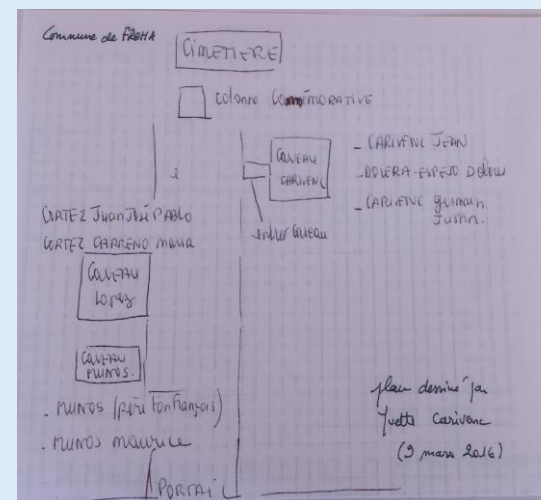 Commune de FROHA
CIMETIERE
colonne COMMÉMORATIVE
CAVEAU
CARIVENC
- CARIVENC JEAN
- DOLERA-ESPEJO Dolores
- CARIVENC Germain
Justin.
entrée Caveau
CORTEZ Juan José PABLO
CORTEZ CARRENO Maria
CAVEAU
LOPEZ
CAVEAU
MUNOS.
- MUNOS (père Tonton François)
- MUNOS Maurice
PORTAIL
plan dessiné par
Yvette Carivenc
(9 mars 2016)